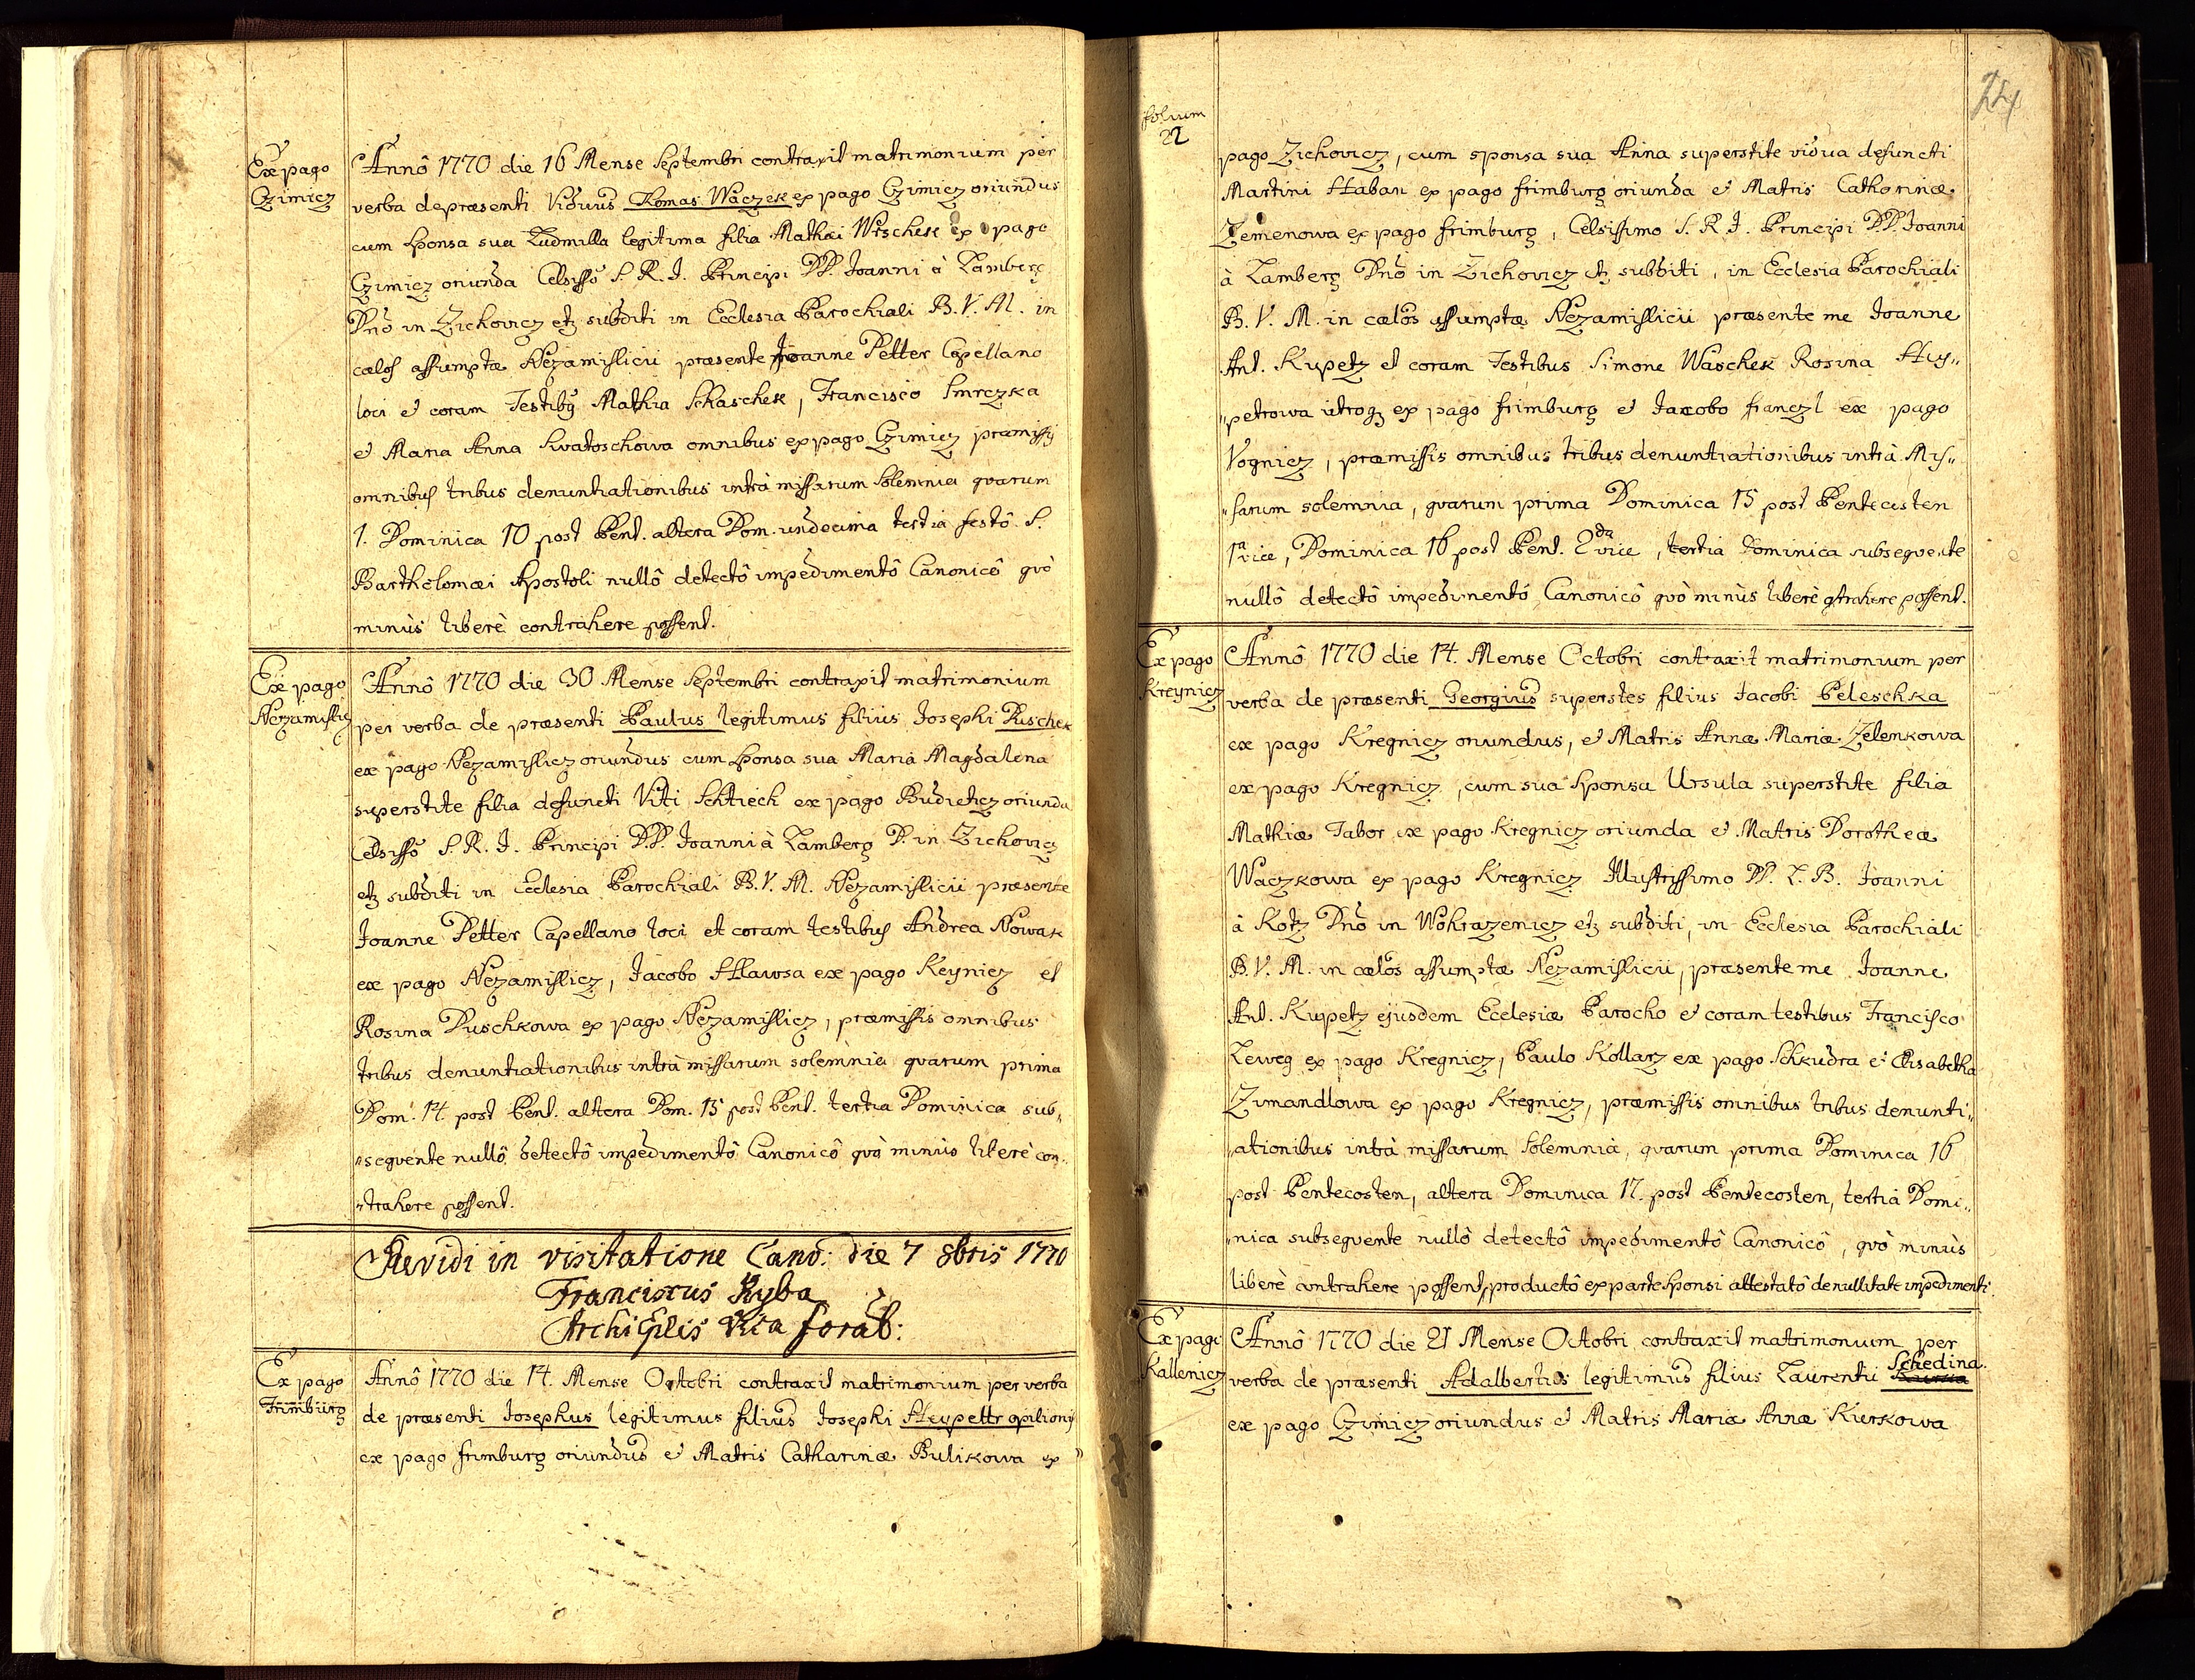 Ex pago
Czimicz
Annô 1770 die 16 Mense Septembri contraxit matrimonium per
verba depræsenti Viduus Thomas Waczek ex pago Czimicz oriundus
cum sponsa sua Ludmilla legitima filia Mathæi Wrschek ex pago
Czimicz oriunda Celsisso S. R. I. Principi DD. Joanni à Lamberg
Dno in Zichovicz etz subditi in Ecclesia Parochiali B. V. M. in
cælos assumptæ Nezamislicii præsente Joanne Petter Capellano
loci et coram Testibus Mathia Skaschek, Francisco Smrczka
et Maria Anna Swatoschowa omnibus ex pago Czimicz præmissis
omnibus tribus denuntiationibus intrà missarum Solemnia quarum
1. Dominica 10 post Pent. altera Dom. undecima tertia festô S.
Bartholomæi Apostoli nullô detectô impedimentô Canonicô quò
minùs liberè contrahere possent.
Ex pago
Nezamislicz
Annô 1770 die 30 Mense Septembri contraxit matrimonium
per verba de præsenti Paulus legitimus filius Josephi Duschek
ex pago Nezamislicz oriundus cum sponsa sua Maria Magdalena
superstite filia defuncti Viti Schtiech ex pago Budieticz oriunda
Celsisso S. R. I. Principi D.D. Joanni à Lamberg D. in Zichovicz
etz subditi in Ecclesia Parochiali B. V. M. Nezamislicii præsente
Joanne Petter Capellano loci et coram testibus Andrea Nowak
ex pago Nezamislicz, Jacobo Hlawsa ex pago Keynicz et
Rosina Duschkowa ex pago Nezamislicz, præmissis omnibus
tribus denuntiationibus intrà missarum solemnia quarum prima
Dom. 14 post Pent. altera Dom. 15 post Pent. tertia Dominica sub„
„sequente nullô detectô impedimentô Canonicô quò minùs liberè con„
„trahere possent.
Revidi in visitatione Cano: die 7 8bris 1770
Franciscus Ryba
Ex pago
Frimburg
Annô 1770 die 14. Mense Octobri contraxit matrimonium per verba
de præsenti Josephus legitimus filius Josephi Heypettr opilionis
ex pago frimburg oriundus et Matris Catharinæ Bulikowa ex
folium
22
24
pago Zichovicz, cum sponsa sua Anna superstite vidua defuncti
Martini Haban ex pago frimburg oriunda et Matris Catharinæ
Zemenowa ex pago frimburg, Celsissimo S. R. I. Principi D.D. Joanni
à Lamberg Dno in Zichovicz etz subditi, in Ecclesia Parochiali
B. V. M. in cælos assumptæ Nezamislicii præsente me Joanne
Ant. Kupetz et coram Testibus Simone Waschek Rosina Hey„
„petrowa utroq ex pago frimburg et Jacobo franczl ex pago
Vognicz, præmissis omnibus tribus denuntiationibus intrà Mis„
„sarum solemnia, quarum prima Dominica 15 post Pentecosten
1a vice, Dominica 16 post Pent. 2da vice, tertia Dominica subsequente
nullô detectô impedimentô Canonicô quò minùs liberè contrahere possent.
Ex pago
Kreynicz
Annô 1770 die 14. Mense Octobri contraxit matrimonium per
verba de præsenti Georgius superstes filius Jacobi Peleschka
ex pago Kregnicz oriundus, et Matris Annæ Mariæ Zelenkowa
ex pago Kregnicz, cum sua Sponsa Ursula superstite filia
Mathiæ Tabor ex pago Kregnicz oriunda et Matris Dorotheæ
Waczkowa ex pago Kregnicz Illustrissimo D. L. B. Joanni
à Kotz Dno in Wohrazenicz etz subditi, in Ecclesia Parochiali
B. V. M. in cælos assumptæ Nezamislicii, præsente me Joanne
Ant. Kupetz ejusdem Ecclesiæ Parocho et coram testibus Francisco
Leweg ex pago Kregnicz, Paulo Kollarz ex pago Schkudra et Elisabetha
Zimandlowa ex pago Kregnicz, præmissis omnibus tribus denunti„
„ationibus intrà missarum Solemnia, quarum prima Dominica 16
post Pentecosten, altera Dominica 17. post Pentecosten, tertia Domi„
„nica subsequente nullô detectô impedimentô Canonicô, quò minùs
liberè contrahere possent, productô ex parte Sponsi attestatô de nullitate impedimenti.
Ex pago
Kallenicz
Annô 1770 die 21 Mense Octobri contraxit matrimonium per
verba de præsenti Adalbertus legitimus filius Laurentii Schedina
ex pago Czimicz oriundus et Matris Mariæ Annæ Kurkowa